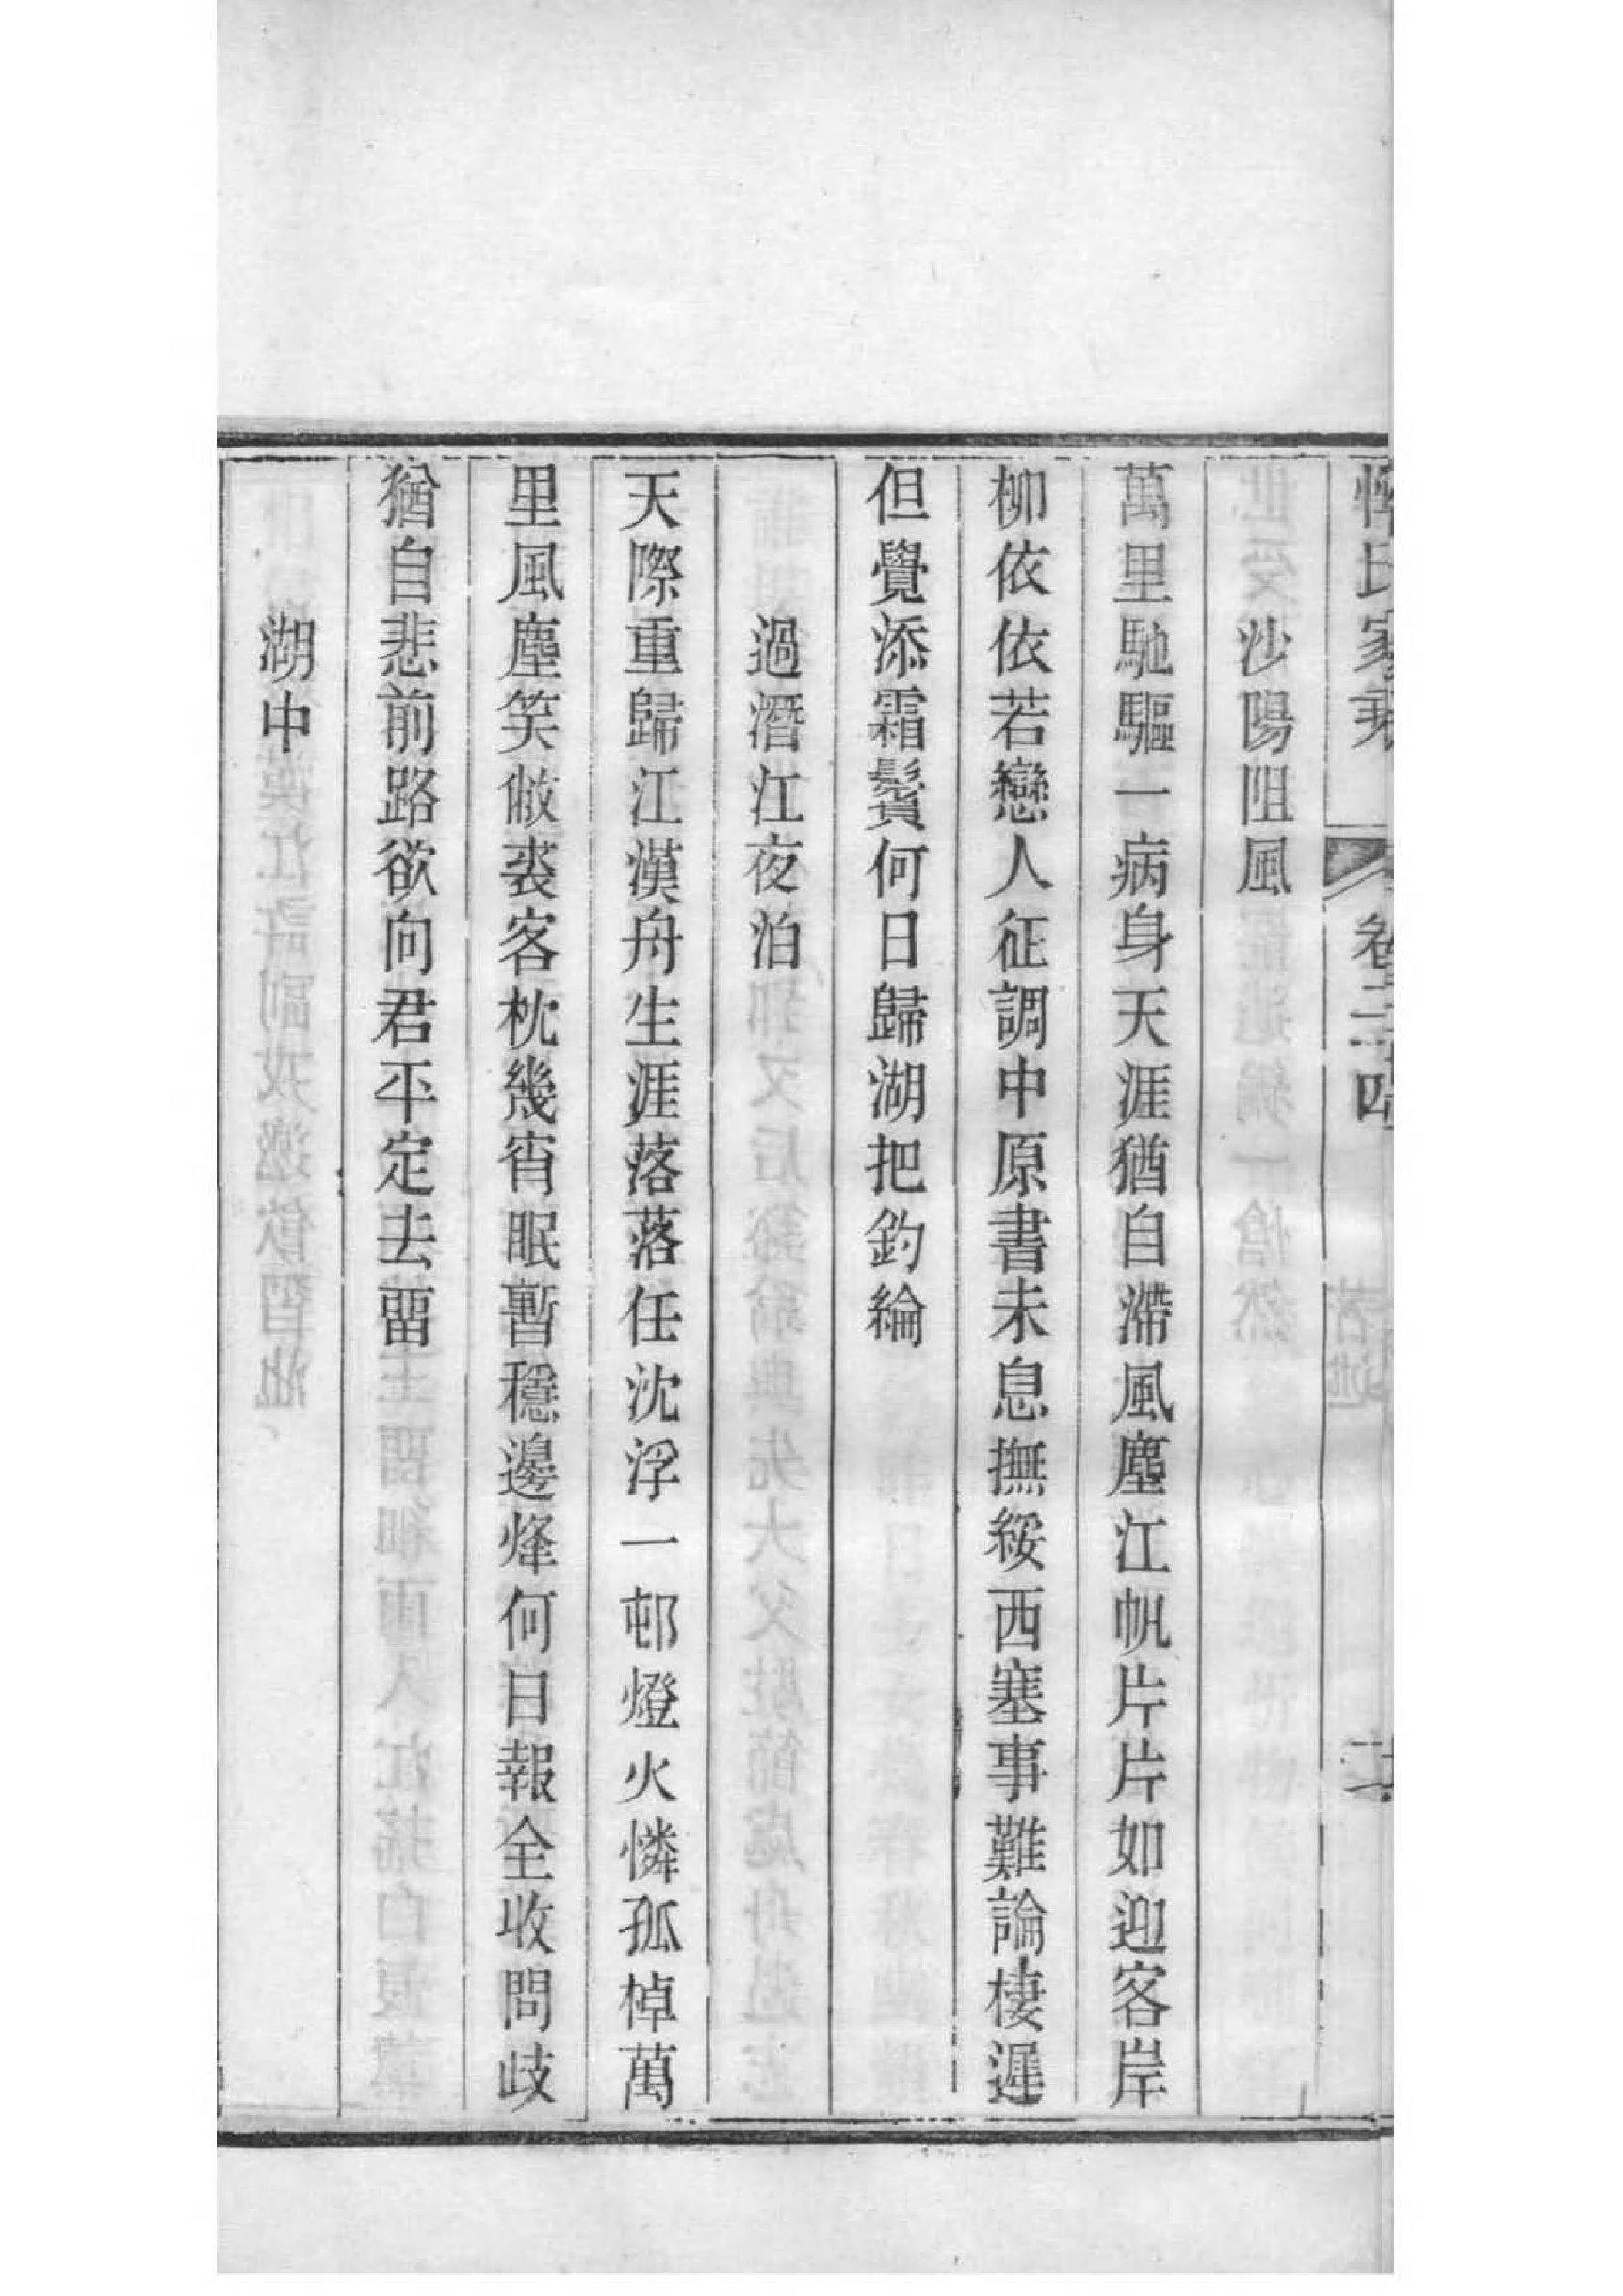 惲氏家乘 卷三十四
沙陽阻風
萬里馳驅一病身天涯猶自滯風塵江帆片片如迎客岸
柳依依若戀人征調中原書未息撫綏西塞事難論棲遲
但覺添霜鬢何日歸湖把釣綸
過潛江夜泊
天際重歸江漢舟生涯落落任沈浮一邨燈火憐孤棹萬
里風塵笑敝裘客枕幾宵眠暫穩邊烽何日報全收問歧
猶自悲前路欲向君平定去畱
湖中